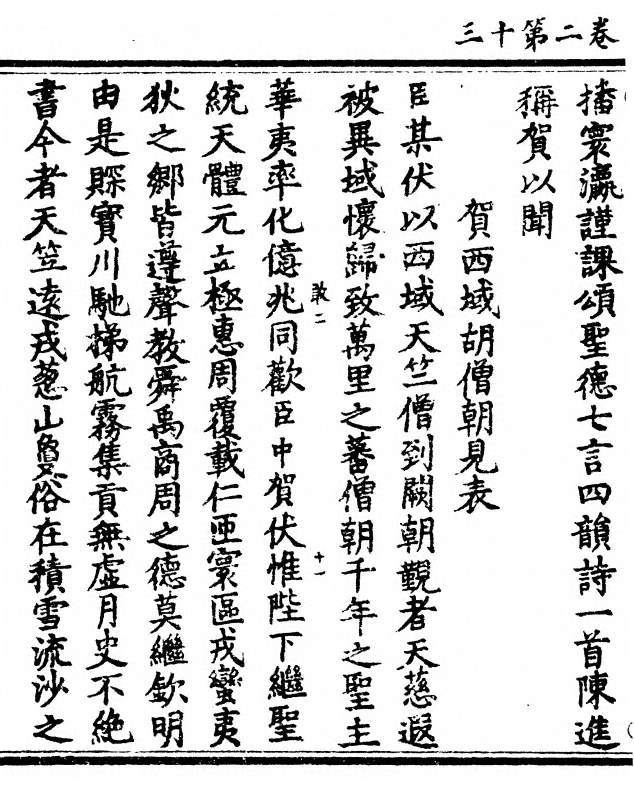 卷二第十三
播寰瀛謹課頌聖德七言四韻詩一首陳進
稱賀以聞
賀西域胡僧朝見表
臣某伏以西域天竺僧到闕朝覲者天慈遐
被異域懷歸致萬里之蕃僧朝千年之聖主
敦二
十一
華夷率化億兆同歡臣中賀伏惟陛下繼聖
統天體元立極惠周覆載仁匝寰區戎蠻夷
狄之鄉皆遵聲教舜禹商周之德莫繼欽明
由是賝寶川馳梯航霧集貢無虛月史不絕
書今者天竺遠戎蔥山敻俗在積雪流沙之